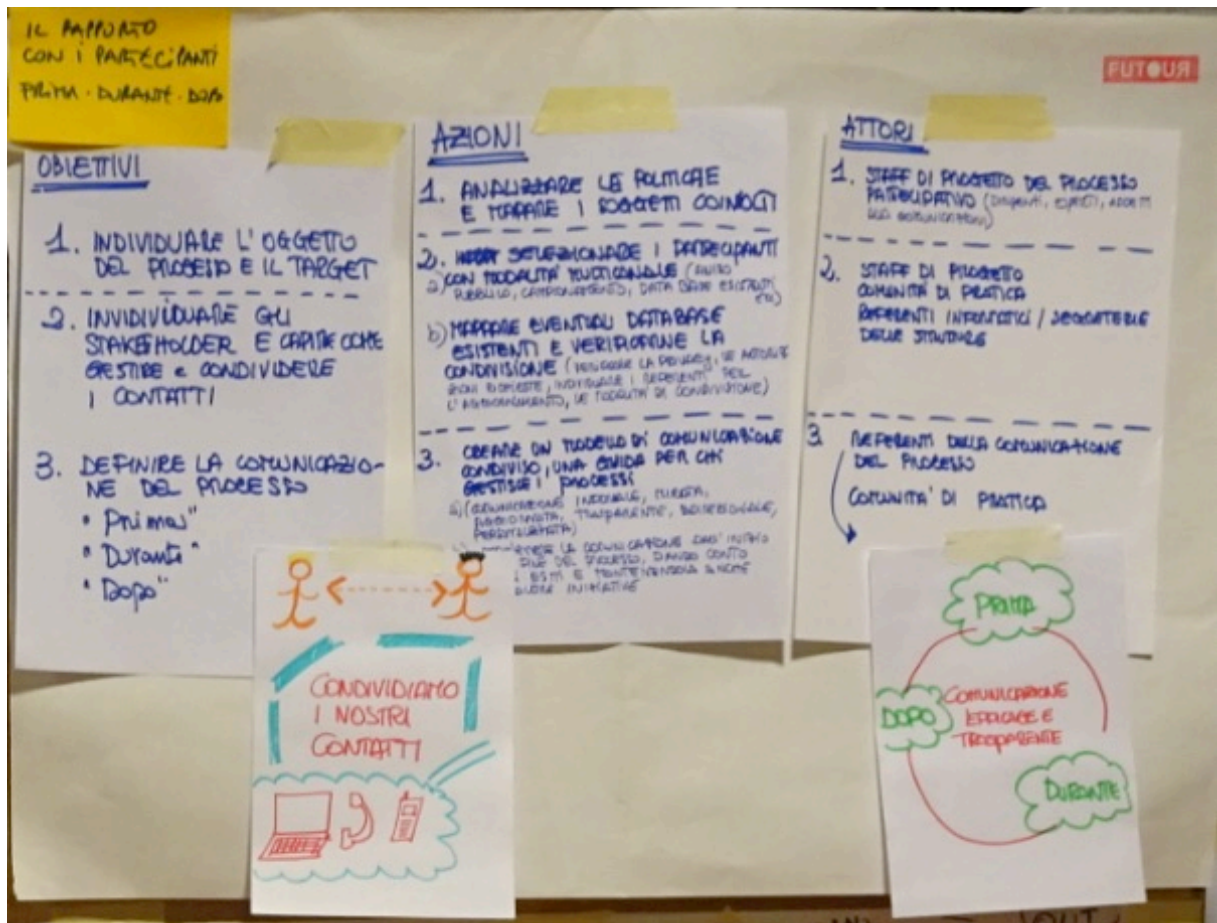 IL RAPPORTO
CON I PARTECIPANTI
PRIMA - DURANTE - DOPO
FUTOUR
OBIETTIVI
1. INDIVIDUARE L'OGGETTO
DEL PROCESSO E IL TARGET
2. INVIDIVIDUARE GLI
STAKEHOLDER E CAPIRE COME
GESTIRE e CONDIVIDERE
I CONTATTI
3. DEFINIRE LA COMUNICAZIO-
NE DEL PROCESSO
"Prima"
"Durante"
"Dopo"
AZIONI
1. ANALIZZARE LE POLITICHE
E MAPPARE I SOGGETTI COINVOLTI
2. SELEZIONARE I PARTECIPANTI
a) CON MODALITÀ MULTICANALE (AVVISO
PUBBLICO, CAMPIONAMENTO, DATA BASE ESISTENTI
ETC)
b) MAPPARE EVENTUALI DATABASE
ESISTENTI E VERIFICARNE LA
CONDIVISIONE (VERIFICARE LA PRIVACY, LE
RICHIESTE, INDIVIDUARE I REFERENTI PER
L'AGGIORNAMENTO, LE MODALITÀ DI CONDIVISIONE)
3. CREARE UN MODELLO DI COMUNICAZIONE
CONDIVISO, UNA GUIDA PER CHI
GESTISCE I PROCESSI
a) (COMUNICAZIONE MIRATA,
AGGIORNATA, TRASPARENTE, BIDIREZIONALE,
LA COMUNICAZIONE DALL'INIZIO
DEL PROCESSO, DANDO CONTO
ESITI E MANTENENDOLA ANCHE
INIZIATIVE
ATTORI
1. STAFF DI PROGETTO DEL PROCESSO
PARTECIPATIVO (DIRIGENTI, ESPERTI, ADDETTI
ALLA COMUNICAZIONE)
2. STAFF DI PROGETTO
COMUNITÀ DI PRATICA
REFERENTI INFORMATICI / SEGRETERIE
DELLE STRUTTURE
3 REFERENTI DELLA COMUNICAZIONE
DEL PROCESSO
COMUNITA' DI PRATICA
CONDIVIDIAMO
I NOSTRI
CONTATTI
PRIMA
COMUNICAZIONE
EFFICACE E
TRASPARENTE
DOPO
DURANTE